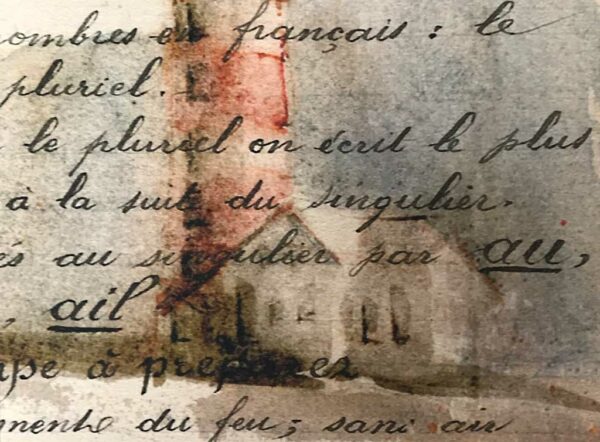 nombres en français : le
pluriel.
le pluriel on écrit le plus
à la suite du singulier.
és au singulier par au,
, ail
upe à préparez
du feu ; sans air